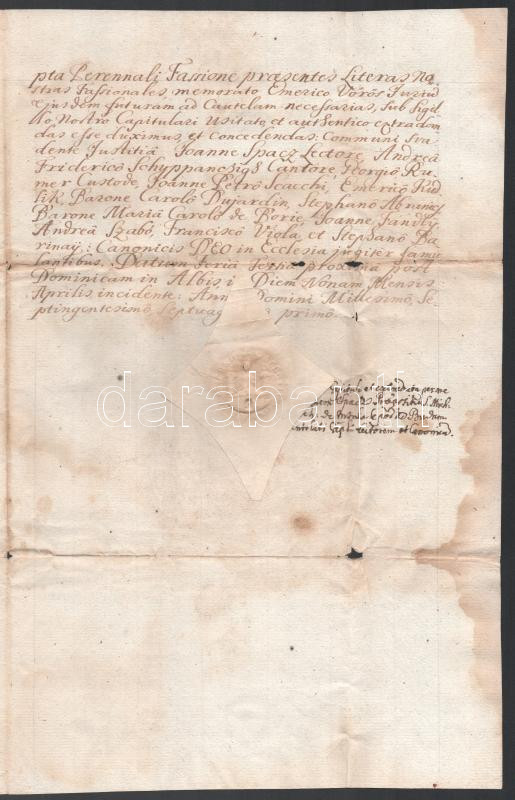 pta Perennali Fassione præsentes Literas No
stras Fassionales, memorato Emerico Vörös Jurium
ejusdem futuram ad Cautelam necessarias, sub Sigil
lo Nostro Capitulari Usitato et authentico extradan
das esse duximus, et concedendas: Communi Sva
dente Justitiâ, Joanne Spacz Lectore, Andreâ
Friderico Schyppanczigh Cantore, Georgio Ru
mer Custode, Joanne Petro Scacchi, Emerico
lik Barone Carolo Dujardin, Stephano
Barone Mariâ Carolo de Borie, Joanne Fandly
Andreâ Szabó, Francisco Viola, et Stephano Ba
rinay: Canonicis DEO in Ecclesia jugiter famu
lantibus. Datum Feria Tertia proxima post
Dominicam in Albis, i Diem Nonam Mensis
Aprilis incidente: Ann Domini Millesimo, Se
ptingentesimo Septuag primo.
et extradata per me
Spacz Præpositum S. Mich
de
Lectorem et Canonicum.
darabanth